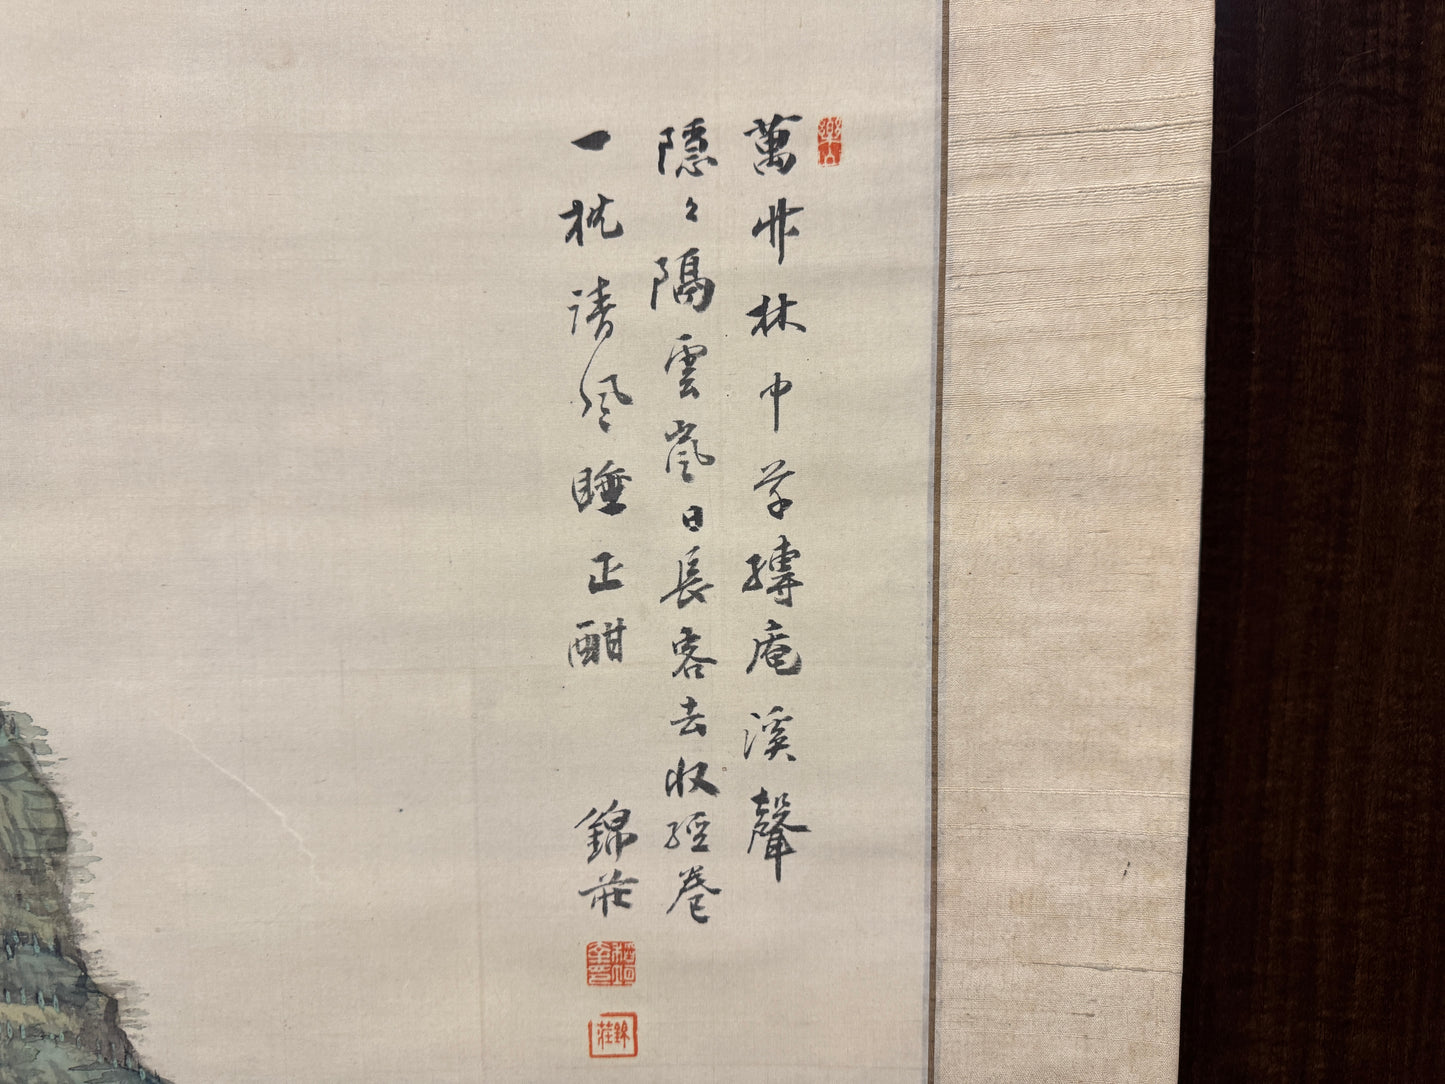 萬竹林中茅縛庵溪聲
隱々隔雲嵐日長客去收經卷
一枕清風睡正酣 錦莊
錦莊